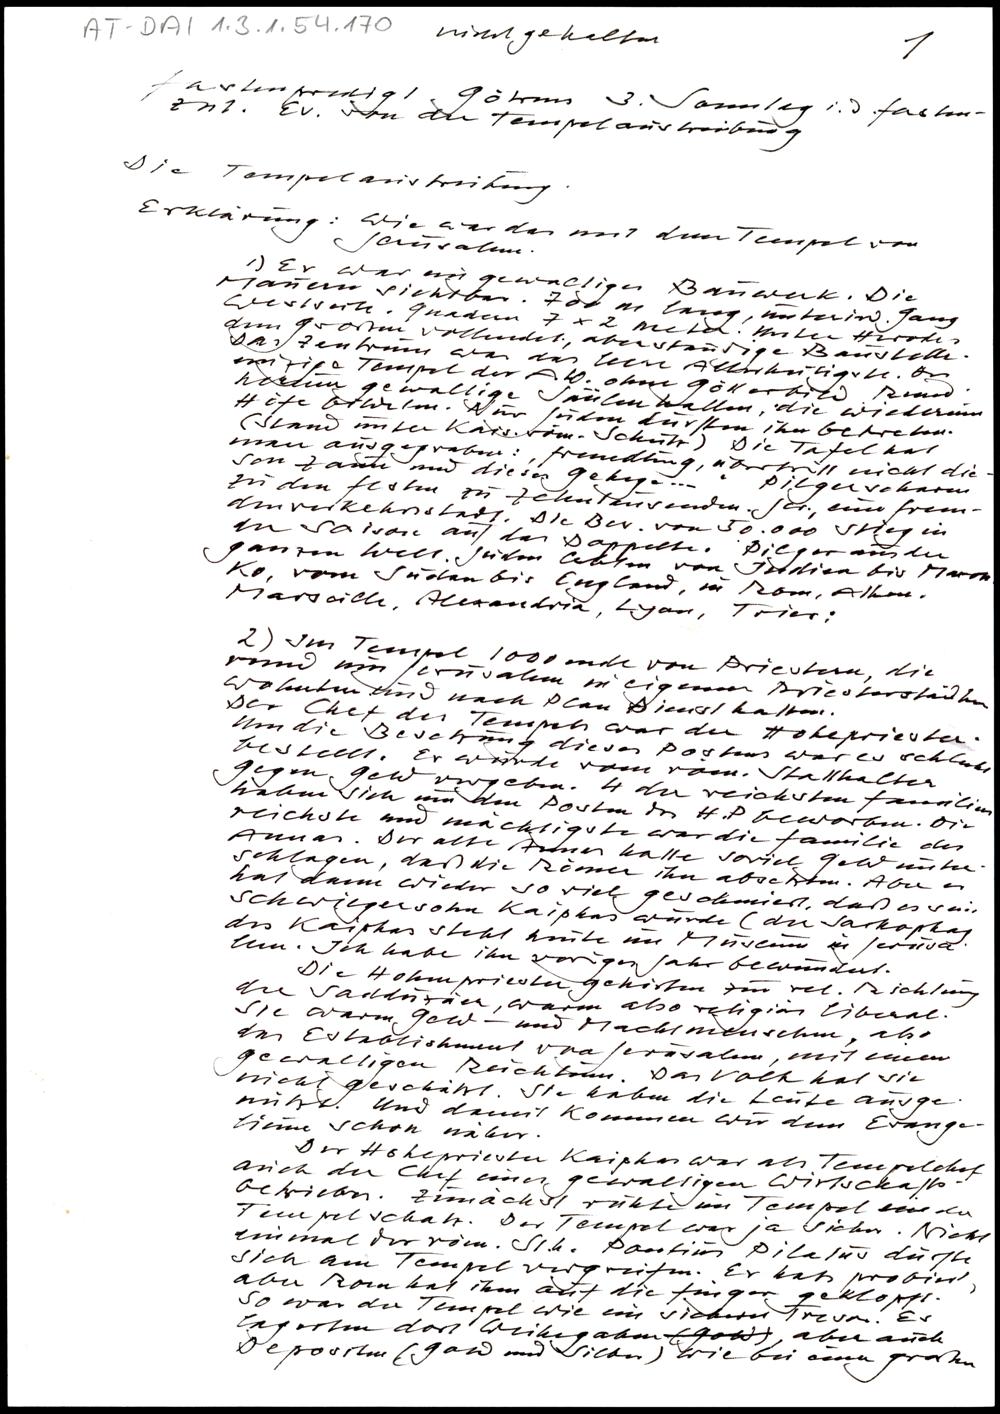 AT-DAI 1.3.1.54.170 nicht gehalten 1
Fastenpredigt Götzens 3. Sonntag i.d. Fasten-
zeit. Ev. von der Tempelaustreibung
Die Tempelaustreibung.
Erklärung: Wie war das mit dem Tempel von
Jerusalem.
1) Er war ein gewaltiges Bauwerk. Die
Mauern sichtbar. 700 m lang, unterird. Gang
Westseite. Quadern 7 x 2 Meter. Unter Herodes
dem Großen vollendet, aber ständige Baustelle.
Das Zentrum war das leere Allerheiligste. Der
einzige Tempel der A.W. ohne Götterbild. Rund
herum gewaltige Säulenhallen, die wiederum
Höfe bildeten. Nur Juden durften ihn betreten.
(Stand unter Kais. röm. Schutz) Die Tafel hat
man ausgegraben: „Fremdling, übertritt nicht die-
sen Zaun und dieses Gehege...." Pilgerscharen
zu den Festen zu Zehntausenden. Jer. eine Frem-
denverkehrsstadt. Die Bev. von 50.000 stieg in
der Saison auf das Doppelte. Pilger aus der
ganzen Welt. Juden lebten von Indien bis Marok
ko, vom Sudan bis England, in Rom, Athen.
Marseille, Alexandria, Lyon, Trier:
2) Im Tempel 1000ende von Priestern, die
rund um Jerusalem in eigenen Priesterstädten
wohnten und nach Plan Dienst hatten.
Der Chef des Tempels war der Hohepriester.
Um die Besetzung dieses Postens war es schlecht
bestellt. Er wurde vom röm. Statthalter
gegen Geld vergeben. 4 der reichsten Familien
haben sich um den Posten des H.P beworben. Die
reichste und mächtigste war die Familie des
Annas. Der alte Annas hatte soviel Geld unter-
schlagen, daß die Römer ihn absetzten. Aber er
hat dann wieder so viel geschmiert, daß es sein
Schwiegersohn Kaiphas wurde (der Sarkophag
des Kaiphas steht heute im Museum in Jerusa-
lem. Ich habe ihn voriges Jahr bewundert.
Die Hohenpriester gehörten zur rel. Richtung
der Sadduzäer, waren also religiös liberal.
Sie waren Geld- und Machtmenschen, also
das Establishment von Jerusalem, mit einem
gewaltigen Reichtum. Das Volk hat sie
nicht geschätzt. Sie haben die Leute ausge-
nützt. Und damit kommen wir dem Evange-
lium schon näher.
Der Hohepriester Kaiphas war als Tempelchef
auch der Chef eines gewaltigen Wirtschafts-
betriebes. Zunächst ruhte im Tempel einmal der
Tempelschatz. Der Tempel war ja sicher. Nicht
einmal der röm. Sth. Pontius Pilatus durfte
sich am Tempel vergreifen. Er hats probiert,
aber Rom hat ihm auf die Finger geklopft.
So war der Tempel wie ein sicherer Tresor. Es
lagerten dort Weihegaben (Gold), aber auch
Depositen (Gold und Silber) wie bei einer großen